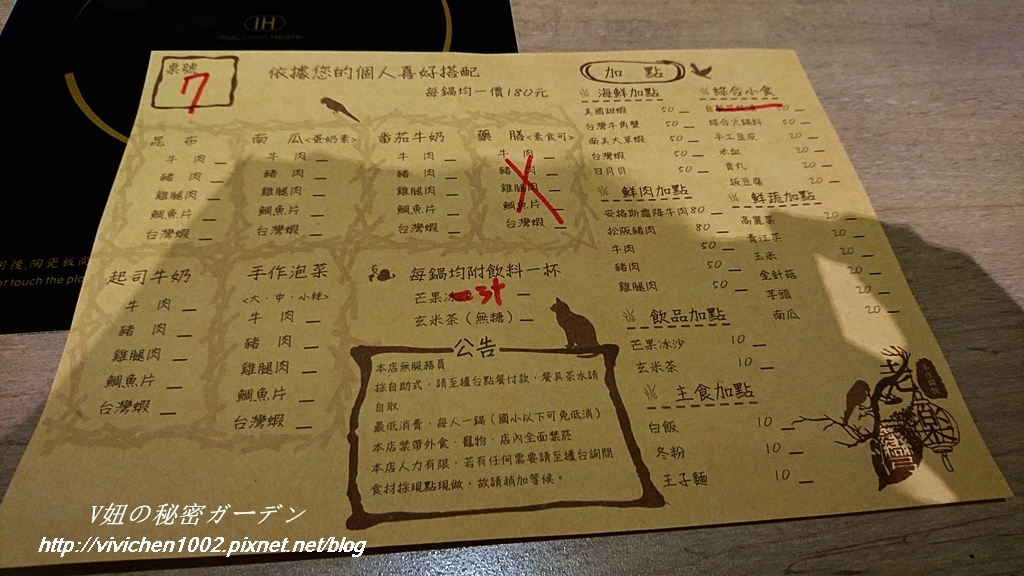 IH
Induction Heater
桌號
7
依據您的個人喜好搭配
每鍋均一價180元
昆布
牛肉
豬肉
雞腿肉
鯛魚片
台灣蝦
南瓜<蛋奶素>
牛肉
豬肉
雞腿肉
鯛魚片
台灣蝦
番茄牛奶
牛肉
豬肉
雞腿肉
鯛魚片
台灣蝦
藥膳<素食可>
牛肉
豬肉
雞腿肉
鯛魚片
台灣蝦
起司牛奶
牛肉
豬肉
雞腿肉
鯛魚片
台灣蝦
手作泡菜
<大、中、小辣>
牛肉
豬肉
雞腿肉
鯛魚片
台灣蝦
每鍋均附飲料一杯
芒果冰 汁
玄米茶(無糖)
公告
本店無服務員
採自助式,請至櫃台點餐付款,餐具茶水請
自取
最低消費,每人一鍋(國小以下可免低消)
本店禁帶外食、寵物,店內全面禁菸
本店人力有限,若有任何需要請至櫃台詢問
食材採現點現做,故請稍加等候。
加點
海鮮加點
美國甜蝦 50
台灣牛角蟹 50
南美大草蝦 50
台灣蝦 50
日月貝 50
鮮肉加點
安格斯霜降牛肉 80
松阪豬肉 80
牛肉 50
豬肉 50
雞腿肉 50
飲品加點
芒果冰沙 10
玄米茶 10
主食加點
白飯 10
冬粉 10
王子麵 10
綜合小食
綜合火鍋料 50
手工豆皮 20
米血 20
貢丸 20
板豆腐 20
鮮蔬加點
高麗菜 20
青江菜 20
玉米 20
金針菇 20
芋頭 20
南瓜 20
V妞の秘密ガーデン
http://vivichen1002.pixnet.net/blog